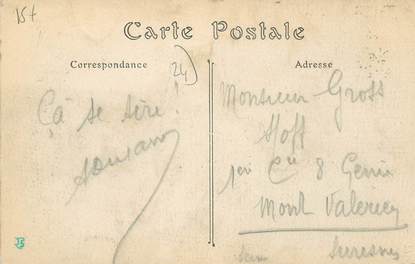 15t
Carte Postale
Correspondance
24
Adresse
Ça se tire !
Monsieur Gross
Hoff
1er Cie 8 Genie
Mont Valerien
Suresnes
Seine
JS